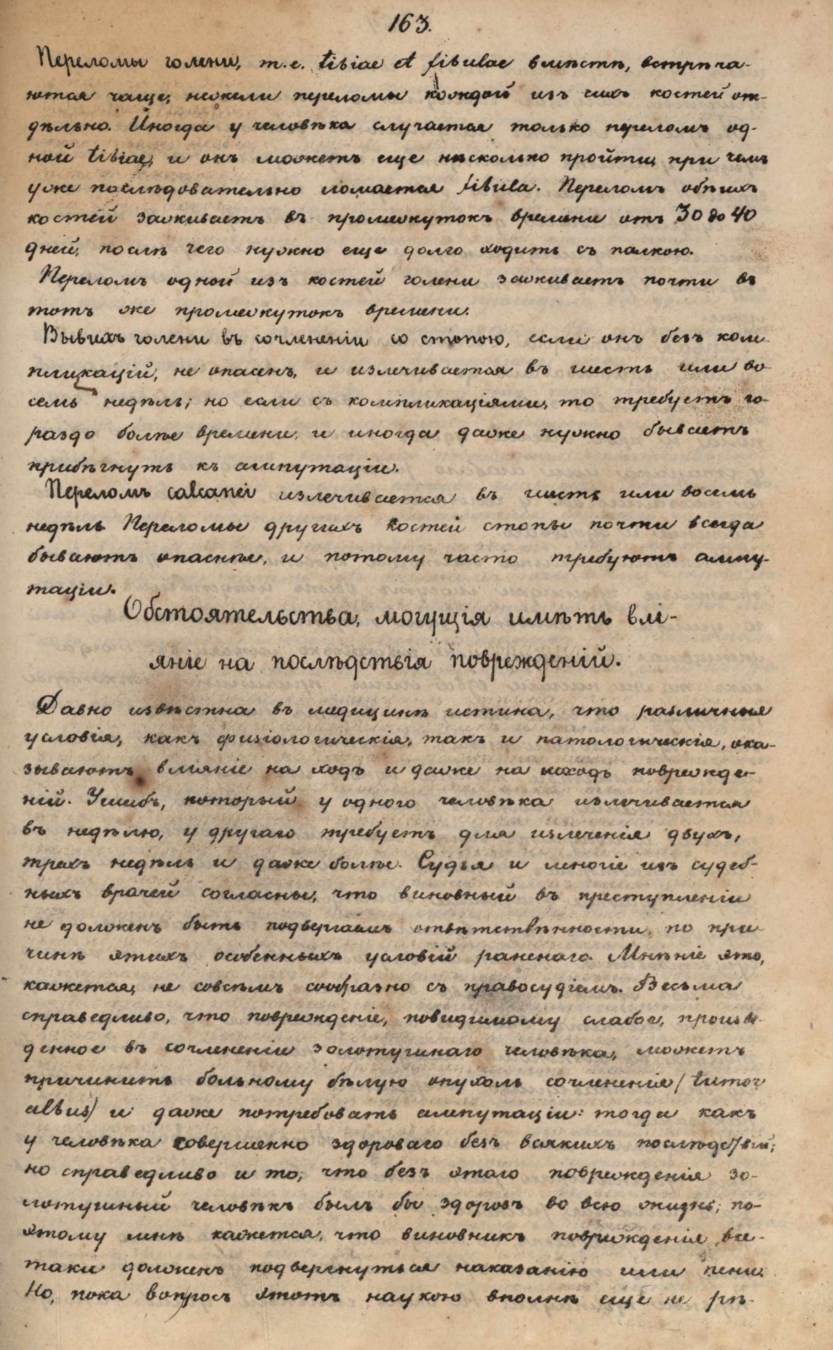 163.
Переломы голени, т.е. tibiae et fibulae вмѣстѣ, встрѣча-
ются чаще, нежели переломы каждой изъ сихъ костей от-
дѣльно. Иногда у человѣка случается только переломъ од-
ной tibiae, и онъ можетъ еще нѣсколько пройти, при чемъ
уже послѣдовательно ломается fibula. Переломъ обѣихъ
костей заживаетъ въ промежутокъ времени отъ 30 до 40
дней, послѣ чего нужно еще долго ходить съ палкою.
Переломъ одной изъ костей голени заживаетъ почти въ
тотъ же промежутокъ времени.
Вывихъ голени въ сочлененіи со стопою, если онъ безъ ком-
пликацій, не опасенъ, и излечивается въ шесть или во-
семь недѣль; но если съ компликаціями, то требуетъ го-
раздо болѣе времени, и иногда даже нужно бываетъ
прибѣгнуть къ ампутаціи.
Переломъ calcanei излечивается въ шесть или восемь
недѣль. Переломы другихъ костей стопы почти всегда
бываютъ опасны, и потому часто требуютъ ампу-
таціи.
Обстоятельства, могущія имѣть влі-
яніе на послѣдствія поврежденій.
Давно извѣстна въ медицинѣ истина, что различныя
условія, какъ физіологическія, такъ и патологическія, ока-
зываютъ вліяніе на ходъ и даже на исходъ поврежде-
ній. Ушибъ, который у одного человѣка излечивается
въ недѣлю, у другаго требуетъ для излеченія двухъ,
трехъ недѣль и даже болѣе. Судья и многіе изъ судеб-
ныхъ врачей согласны, что виновный въ преступленіи
не долженъ быть подвергаемъ отвѣтственности, по при-
чинѣ этихъ особенныхъ условій раненаго. Мнѣніе это,
кажется, не совсѣмъ сообразно съ правосудіемъ. Весьма
справедливо, что поврежденіе, повидимому слабое, произве-
денное въ сочлененіе золотушнаго человѣка, можетъ
причинить больному бѣлую опухоль сочлененія (tumor
albus) и даже потребовать ампутаціи: тогда какъ
у человѣка совершенно здороваго безъ всякихъ послѣдствій;
но справедливо и то, что безъ этаго поврежденія зо-
лотушный человѣкъ былъ бы здоровъ во всю жизнь; по-
этому мнѣ кажется, что виновникъ поврежденія все-
таки долженъ подвергнуться наказанію или пени.
Но, пока вопросъ этотъ наукою вполнѣ еще не рѣ-